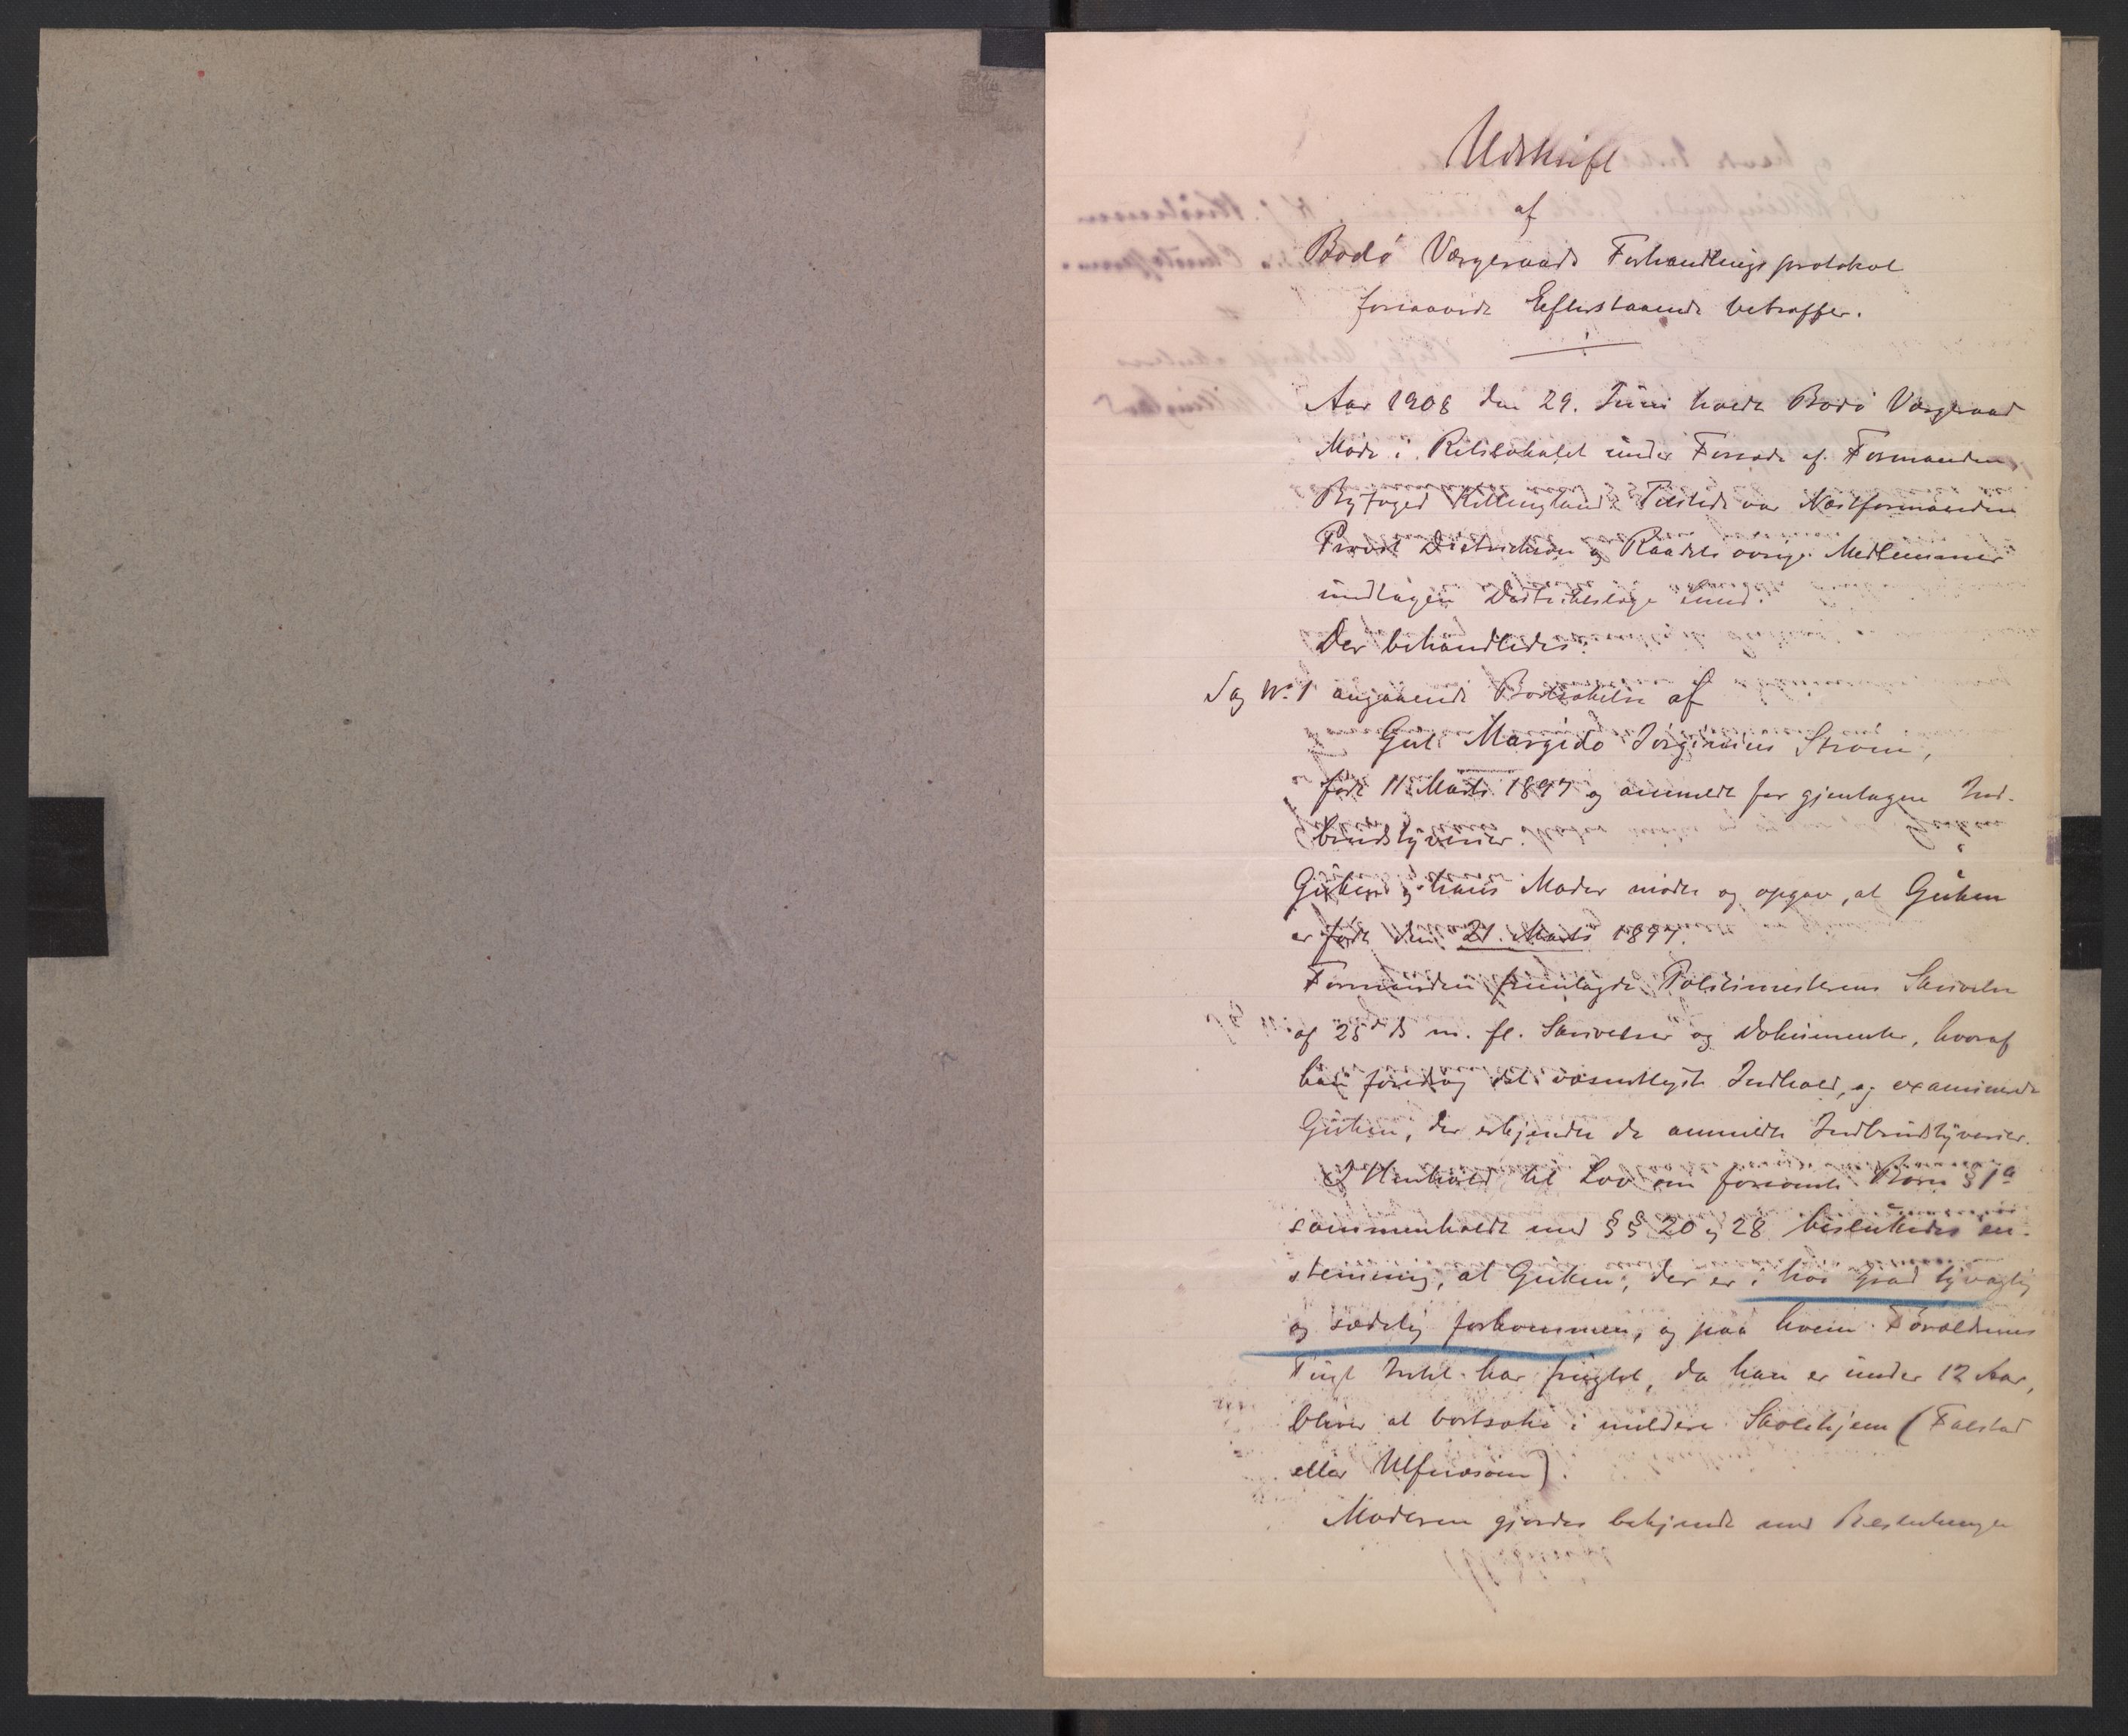 Udskrift
af
Bodø Værgeraads Forhandlingsprotokol
forsaavidt Efterstaaende betræffer.
Aar 1908 den 29. Juni holdt Bodø Værgeraad
Møde i Retslokalet under Forsæde af Formanden,
Byfoged Killengland. Tilstede var Næstformanden
Provst Dietrichson og Raadets øvrige Medlemmer
undtagen Distriktslæge Lund.
Der behandledes:
Sag No 1 angaaende Bortsættelse af
Gut Margido Jørginius Strøm,
født 11. Marts 1897 og anmeldt for gjentagne Ind-
brudstyverier.
Gutten og hans Moder mødte og opgav, at Gutten
er født den 21. Marts 1897.
Formanden fremlagde Politimesterens Skrivelse
af 25 ds m. fl. Skrivelser og Dokumenter, hvoraf
han foredrog det væsentligste Indhold, og examinerede
Gutten, der erkjendte de anmeldte Indbrudstyverier.
I Henhold til Lov om forsømte Børn § 1 a
sammenholdt med §§ 20 og 28 besluttedes en-
stemmig, at Gutten, der er i høi Grad tyvagtig
og sædelig forkommen, og paa hvem Forældrenes
Tugt Intet har frugtet, da han er under 12 Aar,
bliver at bortsætte i mildere Skolehjem (Falstad
eller Ulfsnæsøen).
Moderen gjordes bekjendt med Beslutningen